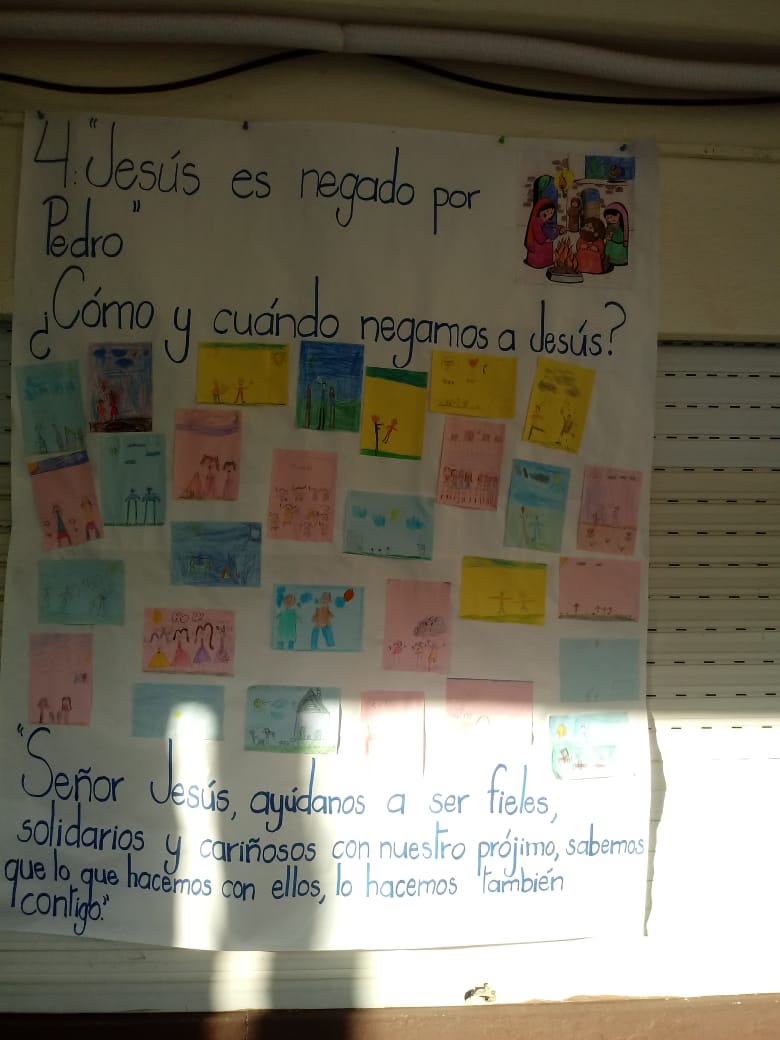 4: "Jesús es negado por
Pedro"
¿Cómo y cuándo negamos a Jesús?
"Señor Jesús, ayúdanos a ser fieles,
solidarios y cariñosos con nuestro prójimo, sabemos
que lo que hacemos con ellos, lo hacemos también
contigo."